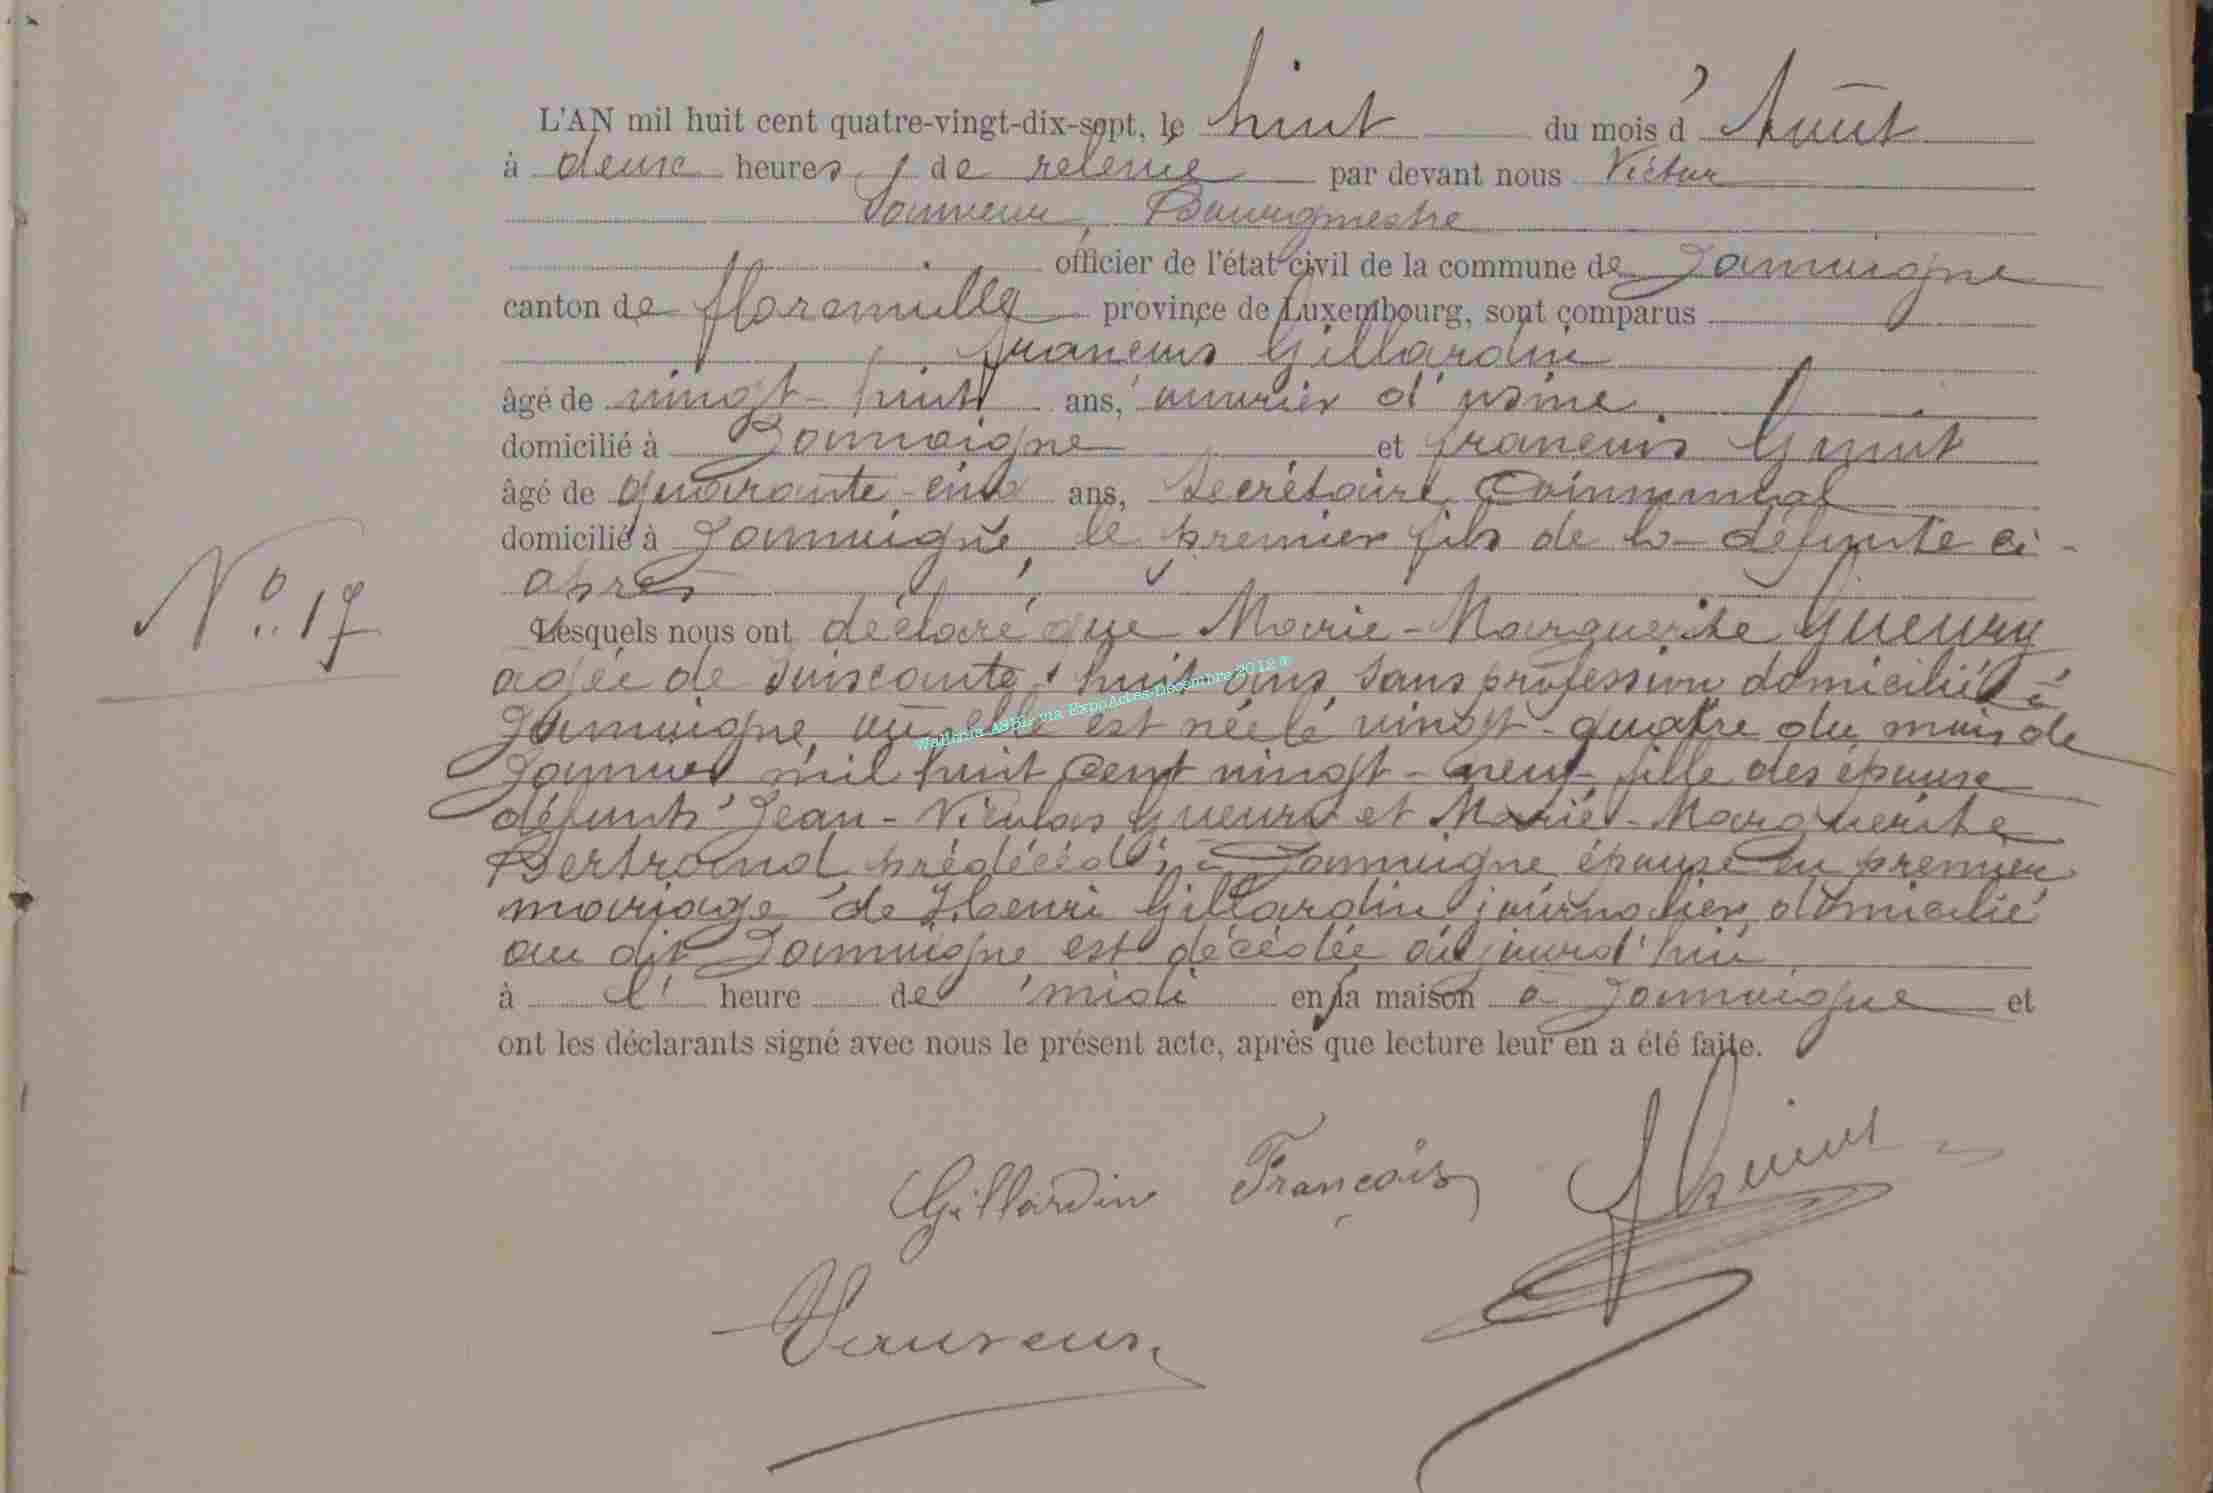 L'AN mil huit cent quatre-vingt-dix-sept, le huit du mois d'Août
à deux heures de relevée par devant nous Victor
Bourgmestre
officier de l'état civil de la commune de Jamoigne
canton de Florenville province de Luxembourg, sont comparus
françois Gillardin
âgé de vingt-huit ans, ouvrier d'usine
domicilié à Jamoigne et françois
âgé de quarante-cinq ans, Secrétaire Communal
domicilié à Jamoigne, le premier fils de la défunte ci-
après
Lesquels nous ont déclaré que Marie-Marguerite Gueury
agée de soixante huit ans, sans profession domiciliée à
Jamoigne, où elle est née le vingt-quatre du mois de
Janvier mil huit cent vingt-neuf, fille des époux
défunts Jean-Nicolas Gueury et Marie-Marguerite
Bertrand, prédécédés à Jamoigne épouse en premier
mariage de Henri Gillardin journalier, domicilié
au dit Jamoigne est décédée aujourd'hui
à l' heure de midi en la maison à Jamoigne et
ont les déclarants signé avec nous le présent acte, après que lecture leur en a été faite.
N° 17
Wallonia ASBL via ExpoActes Décembre 2012 ®
Gillardin François